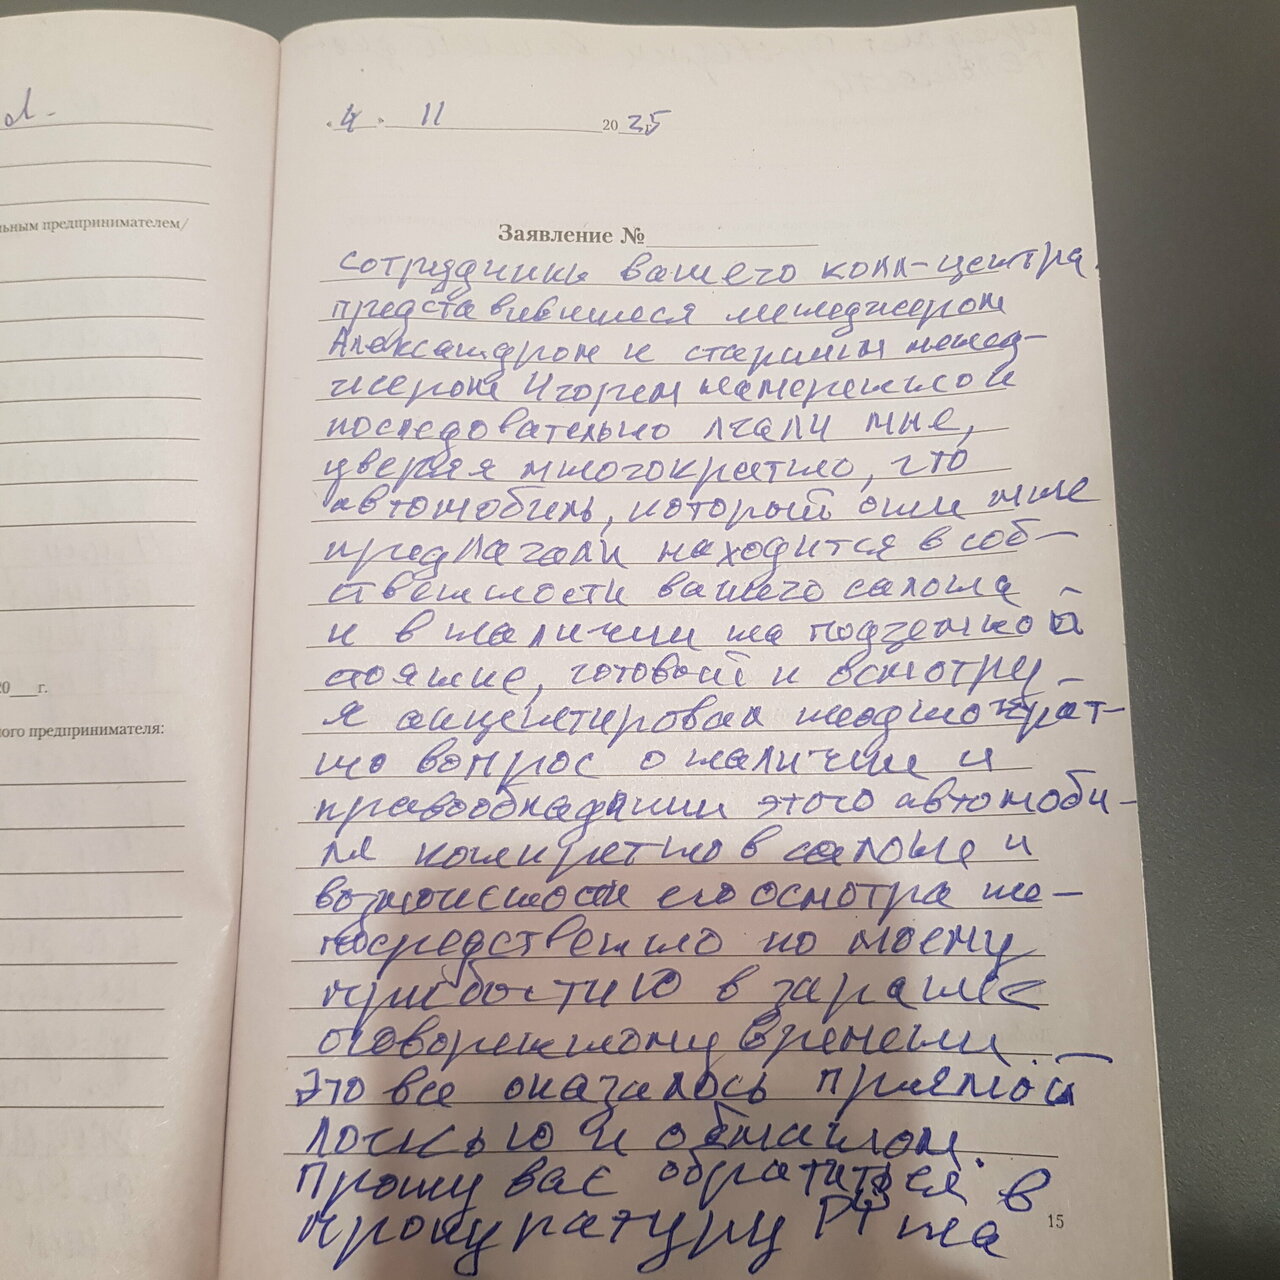 льным предпринимателем/
20___г.
ного предпринимателя:
"4" 11 2025 г.
Заявление №
сотрудники вашего колл-центра
представившиеся менеджером
Александром и старшим менед-
жером Игорем намеренно и
последовательно лгали мне,
уверяя многократно, что
автомобиль, который они мне
предлагали находится в соб-
ственности вашего салона
и в наличии на подземной
стоянке, готовый к осмотру.
Я акцентировал неоднократ-
но вопрос о наличии и
правообладании этого автомоби-
ля конкретно в салоне и
возможности его осмотра не-
посредственно по моему
прибытию в заранее
оговоренному времени.
Это все оказалось прямой
ложью и обманом.
Прошу вас обратиться в
прокуратуру РФ на
15